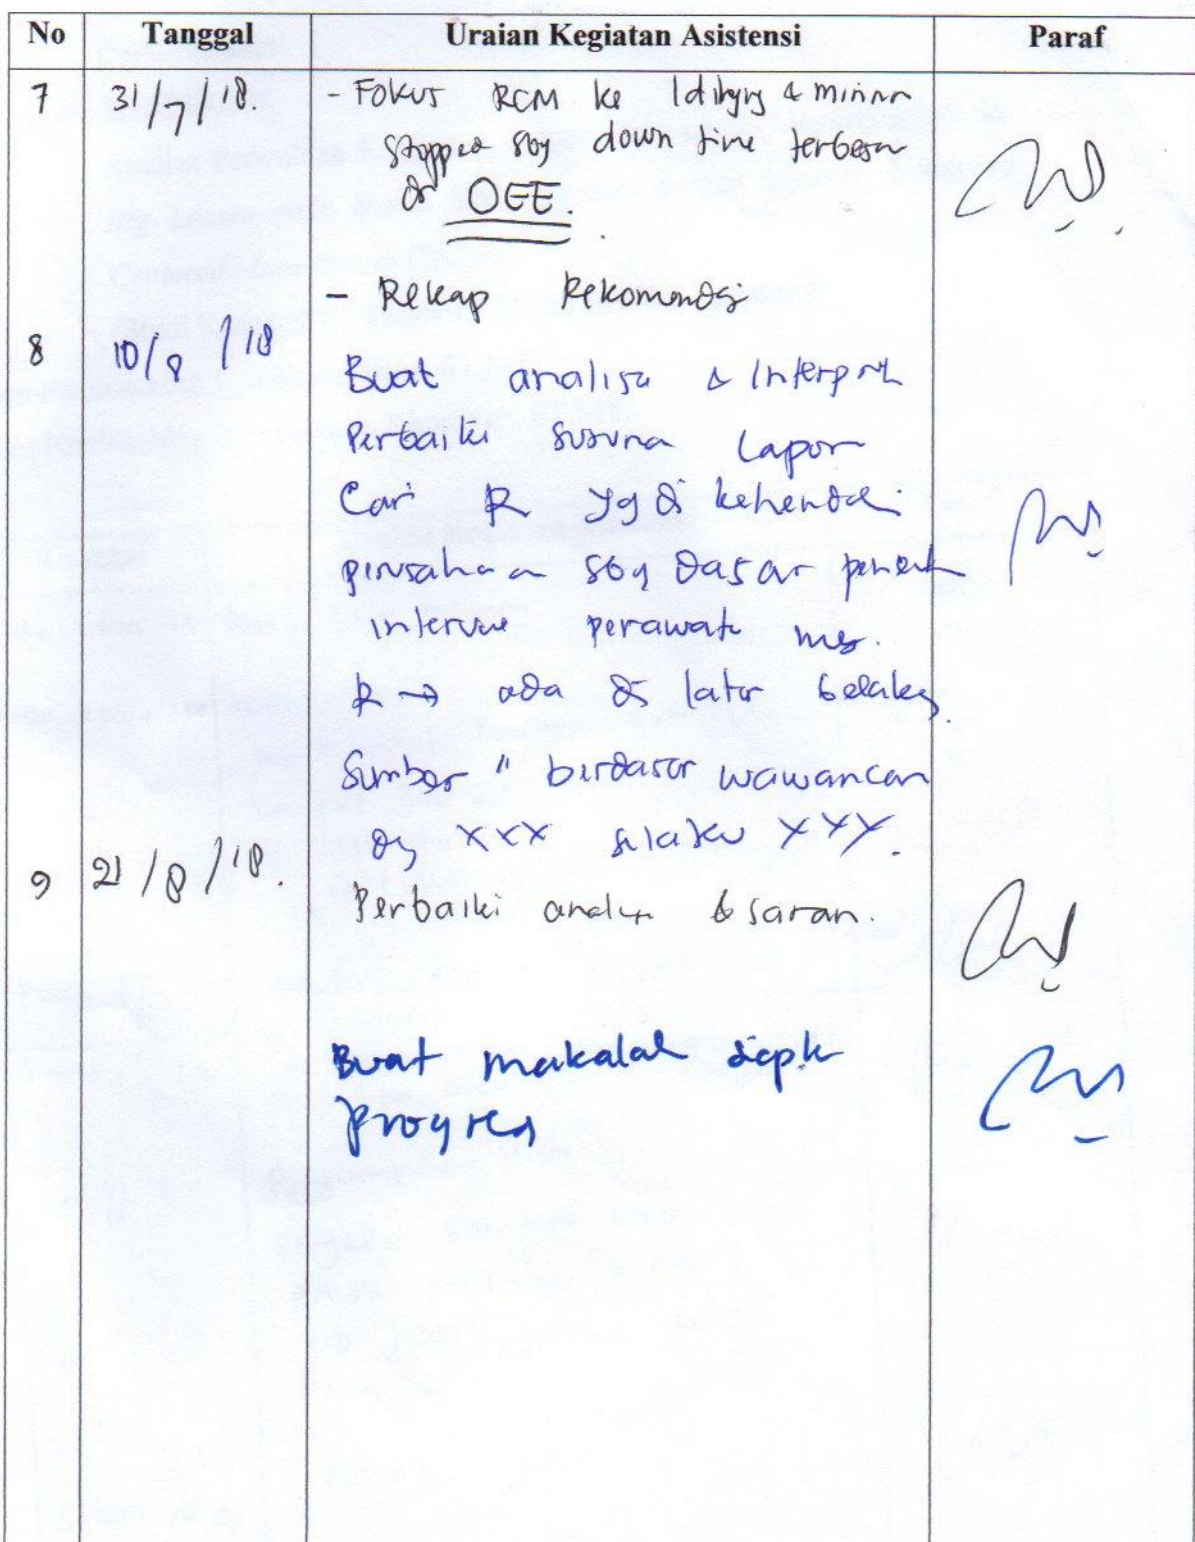 No Tanggal Uraian Kegiatan Asistensi Paraf
7 31/7/18. - Fokus RCM ke Idlying & minor
stopped sbg down time terbesar
di OEE.
- Rekap Rekomendasi
8 10/8/18
Buat analisa & Interpret
Perbaiki susuna Lapor
Cari R yg di kehendaki
perusahaan sbg dasar penent
interval perawata
R → ada di latar belakang
Sumber " berdasar wawancara
dg XXX selaku YYY.
9 21/8/18.
Perbaiki analisa & saran.
Buat makalah
progres